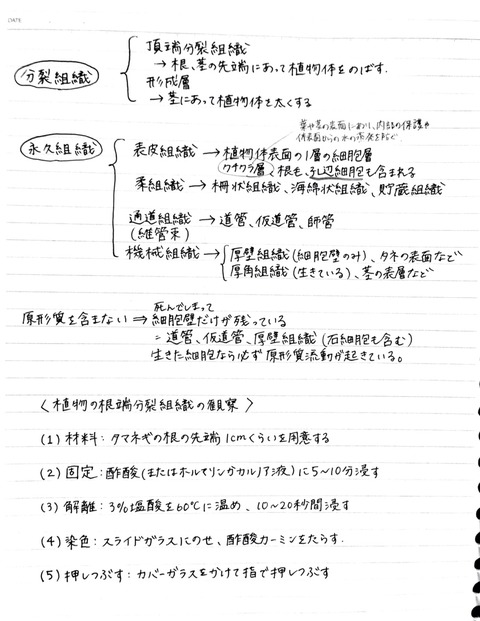 DATE
分裂組織
頂端分裂組織
→根、茎の先端にあって植物体をのばす.
形成層
→茎にあって植物体を太くする
永久組織
葉や茎の表面にあり、内部の保護や
体表面からの水の蒸発を防ぐ
表皮組織→植物体表面の1層の細胞層
クチクラ層、根毛、孔辺細胞も含まれる
柔組織→柵状組織、海綿状組織、貯蔵組織
通道組織→道管、仮道管、師管
(維管束)
機械組織→厚壁組織(細胞壁のみ)、タネの表面など
厚角組織(生きている)、茎の表層など
死んでしまって
原形質を含まない⇒細胞壁だけが残っている
=道管、仮道管、厚壁組織(石細胞も含む)
生きた細胞なら必ず原形質流動が起きている。
〈植物の根端分裂組織の観察〉
(1)材料:タマネギの根の先端1cmくらいを用意する
(2)固定:酢酸(またはホルマリンかカルノア液)に5~10分浸す
(3)解離:3%塩酸を60℃に温め、10~20秒間浸す
(4)染色:スライドガラスにのせ、酢酸カーミンをたらす.
(5)押しつぶす:カバーガラスをかけて指で押しつぶす